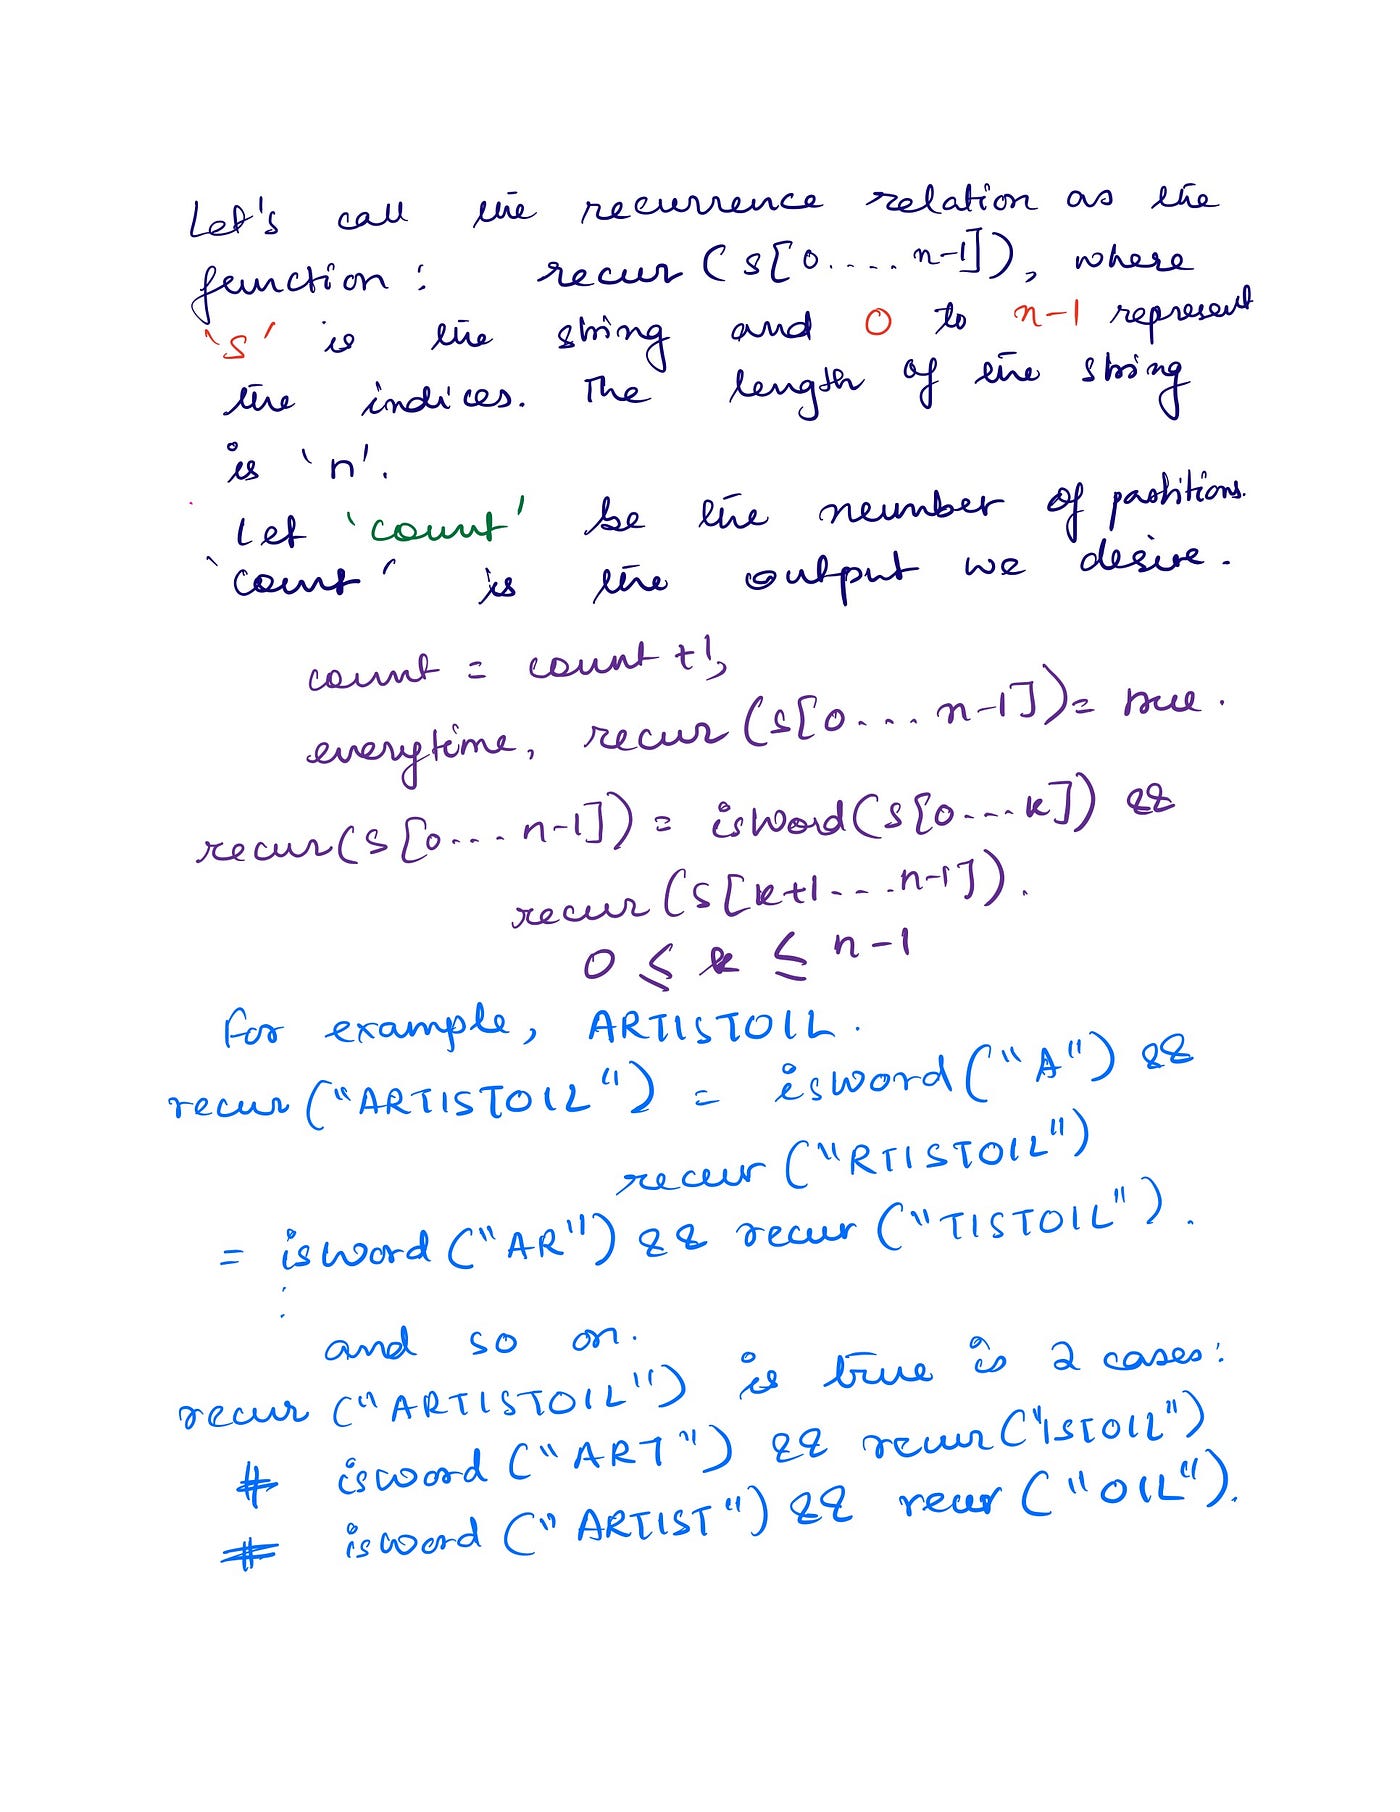 Let's call the recurrence relation as the
function: recur (s[0.... n-1]), where
's' is the string and 0 to n-1 represent
the indices. The length of the string
is 'n'.
Let 'count' be the number of partitions.
'count' is the output we desire.
count = count +1,
everytime, recur (s[0... n-1]) = true.
recur(s[0... n-1]) = isWord(s[0...k]) &&
recur(s[k+1....n-1]).
0 ≤ k ≤ n-1
For example, ARTISTOIL.
recur ("ARTISTOIL") = isWord("A") &&
recur ("RTISTOIL")
= isWord ("AR") && recur ("TISTOIL").
:
and so on.
recur ("ARTISTOIL") is true is 2 cases:
# isword ("ART") && recur ("ISTOIL")
# isword ("ARTIST") && recur ("OIL").